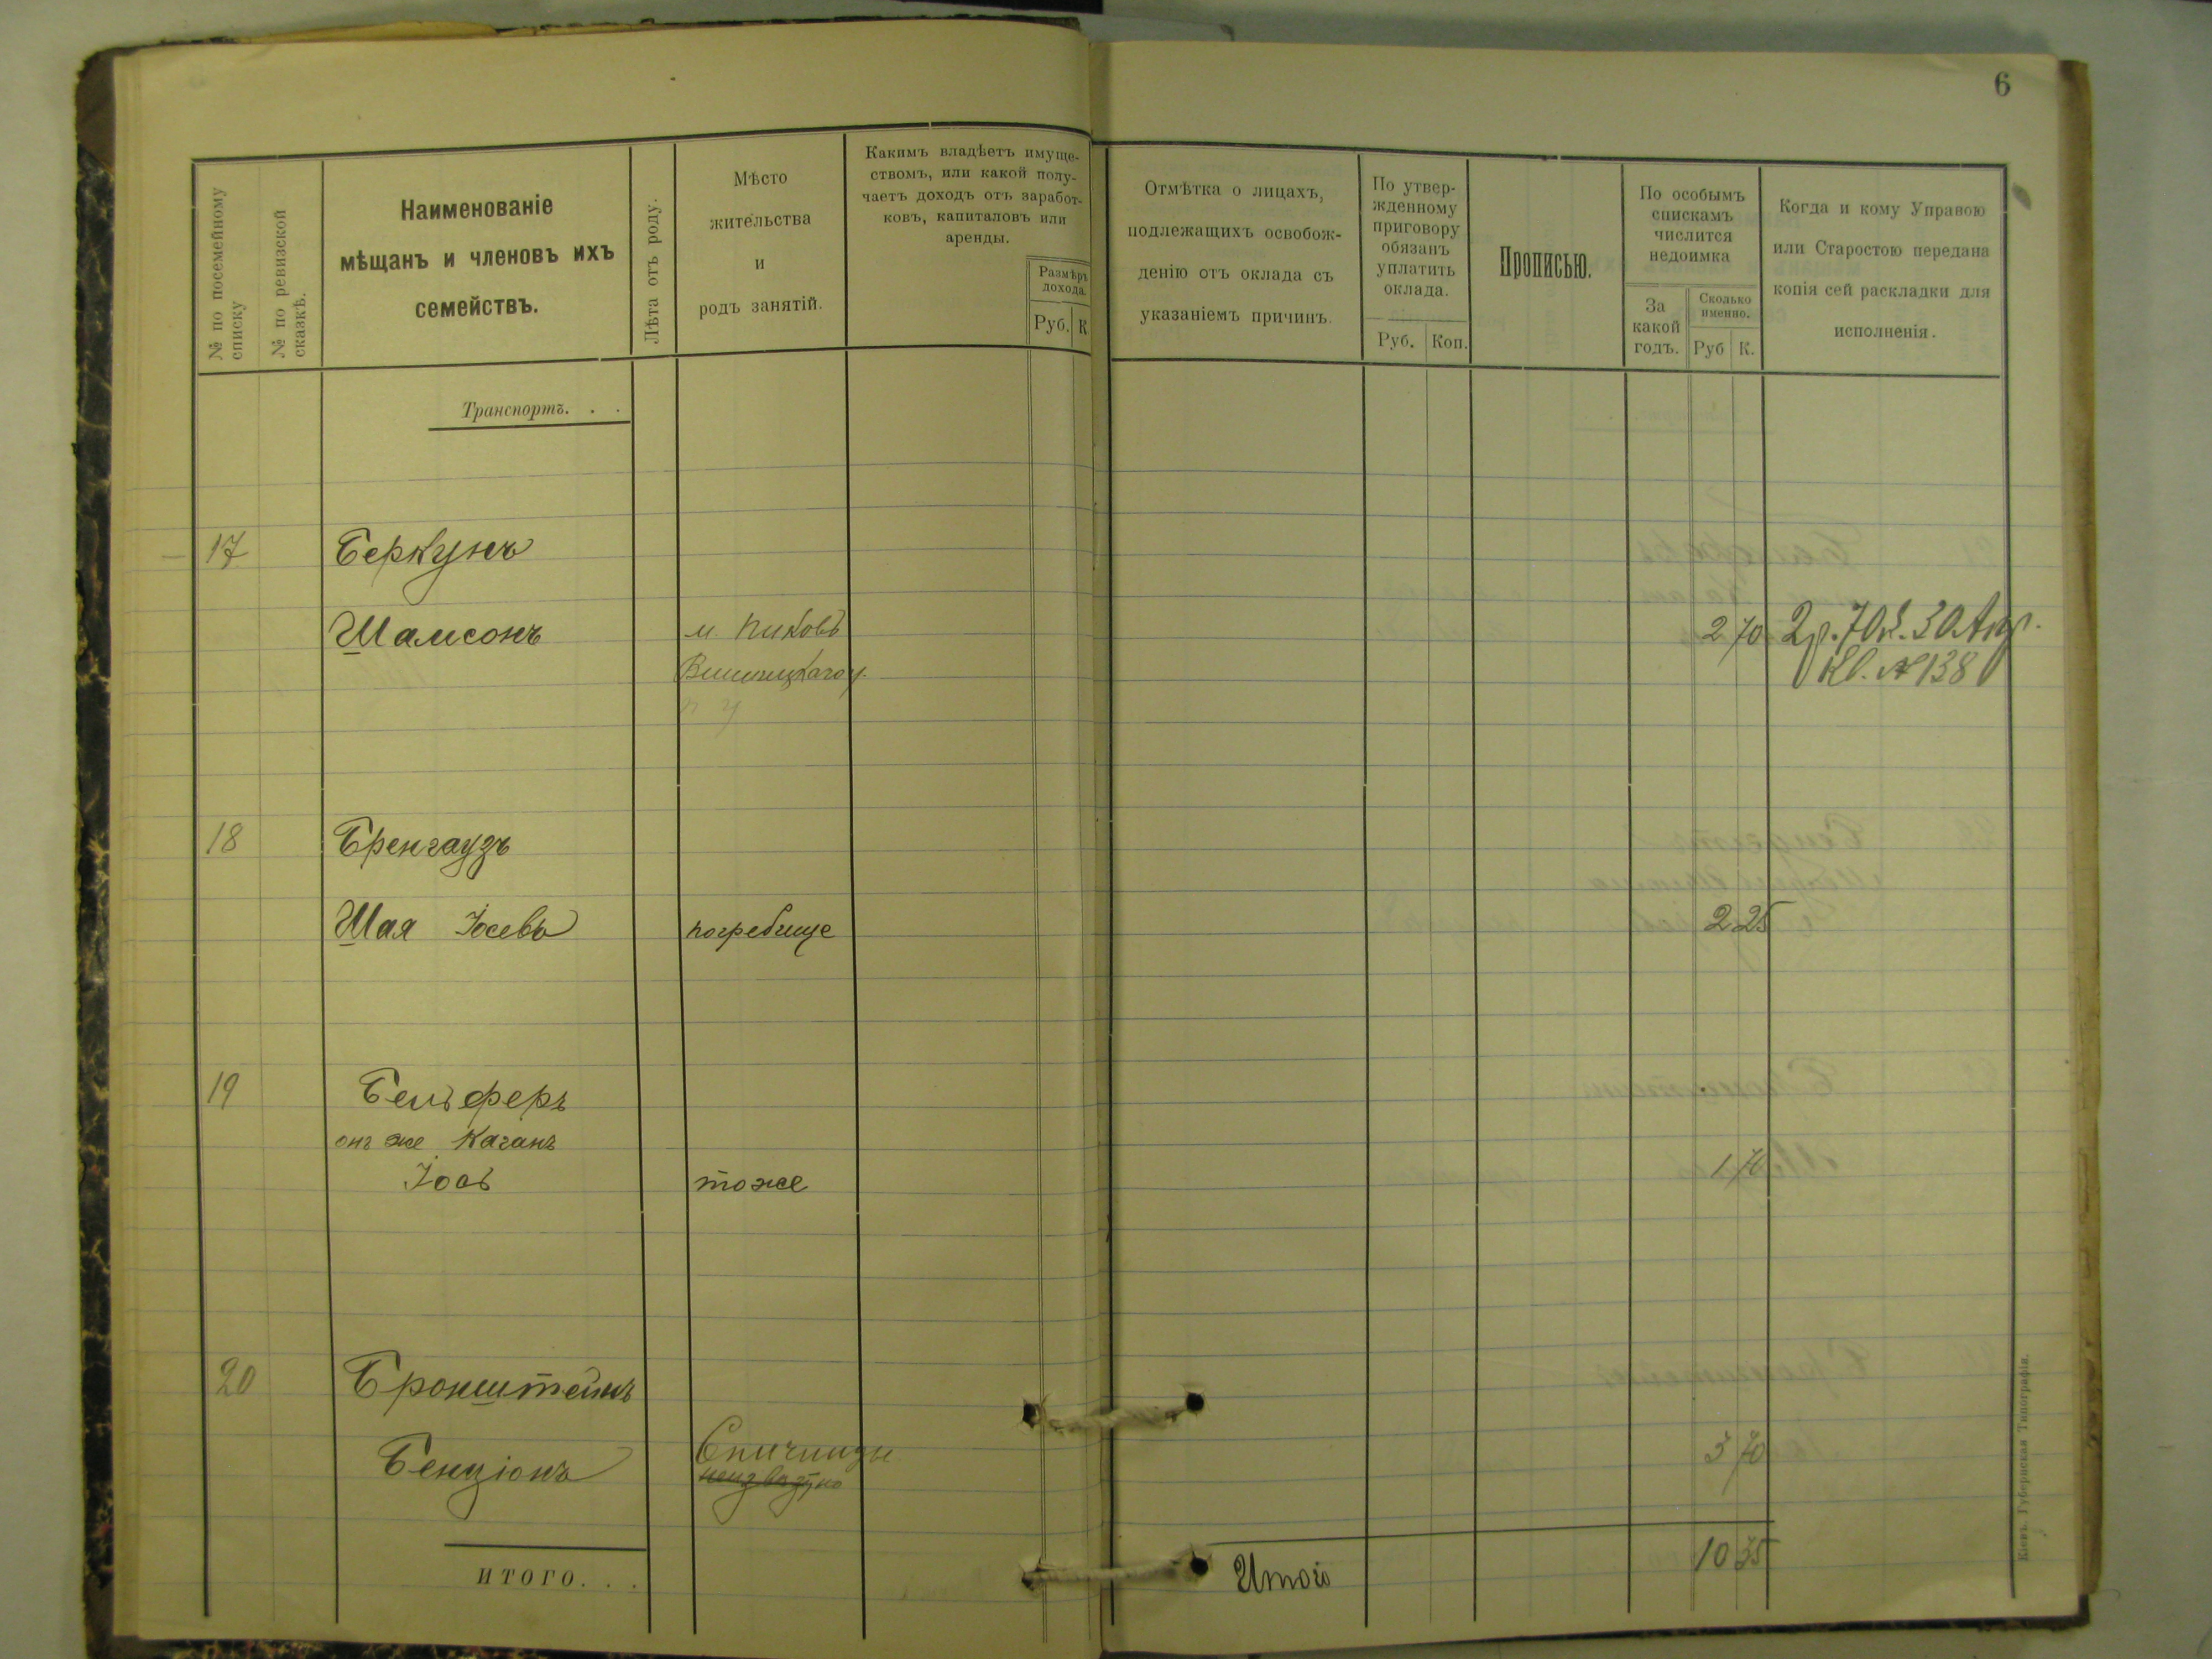 6
№ по посемейному
списку
№ по ревизской
сказкѣ.
Наименованіе
мѣщанъ и членовъ ихъ
семействъ.
Лѣта отъ роду.
Мѣсто
жительства
и
родъ занятій.
Какимъ владѣетъ имуще-
ствомъ, или какой полу-
чаетъ доходъ отъ заработ-
ковъ, капиталовъ или
аренды.
Размѣръ
дохода.
Руб. К.
Отмѣтка о лицахъ,
подлежащихъ освобож-
денію отъ оклада съ
указаніемъ причинъ.
По утвер-
жденному
приговору
обязанъ
уплатить
оклада.
Руб. Коп.
Прописью.
По особымъ
спискамъ
числится
недоимка
За
какой
годъ.
Сколько
именно.
Руб К.
Когда и кому Управою
или Старостою передана
копія сей раскладки для
исполненія.
Транспортъ. . .
17 Беркунъ
Шамсонъ м. Пиковъ 2 70 2р. 70к. 30 Апр.
Винницкаго у. Кв. № 138
18 Бренгаузъ
Шая Іосевъ погребище 2 25
19 Бельферъ
онъ же Каганъ
Іось тоже 1 70
20 Бронштейнъ
Бенціонъ Спичинцы 3 70
ИТОГО. . .
Итого 10 35
Кіевъ. Губернская Типографія.